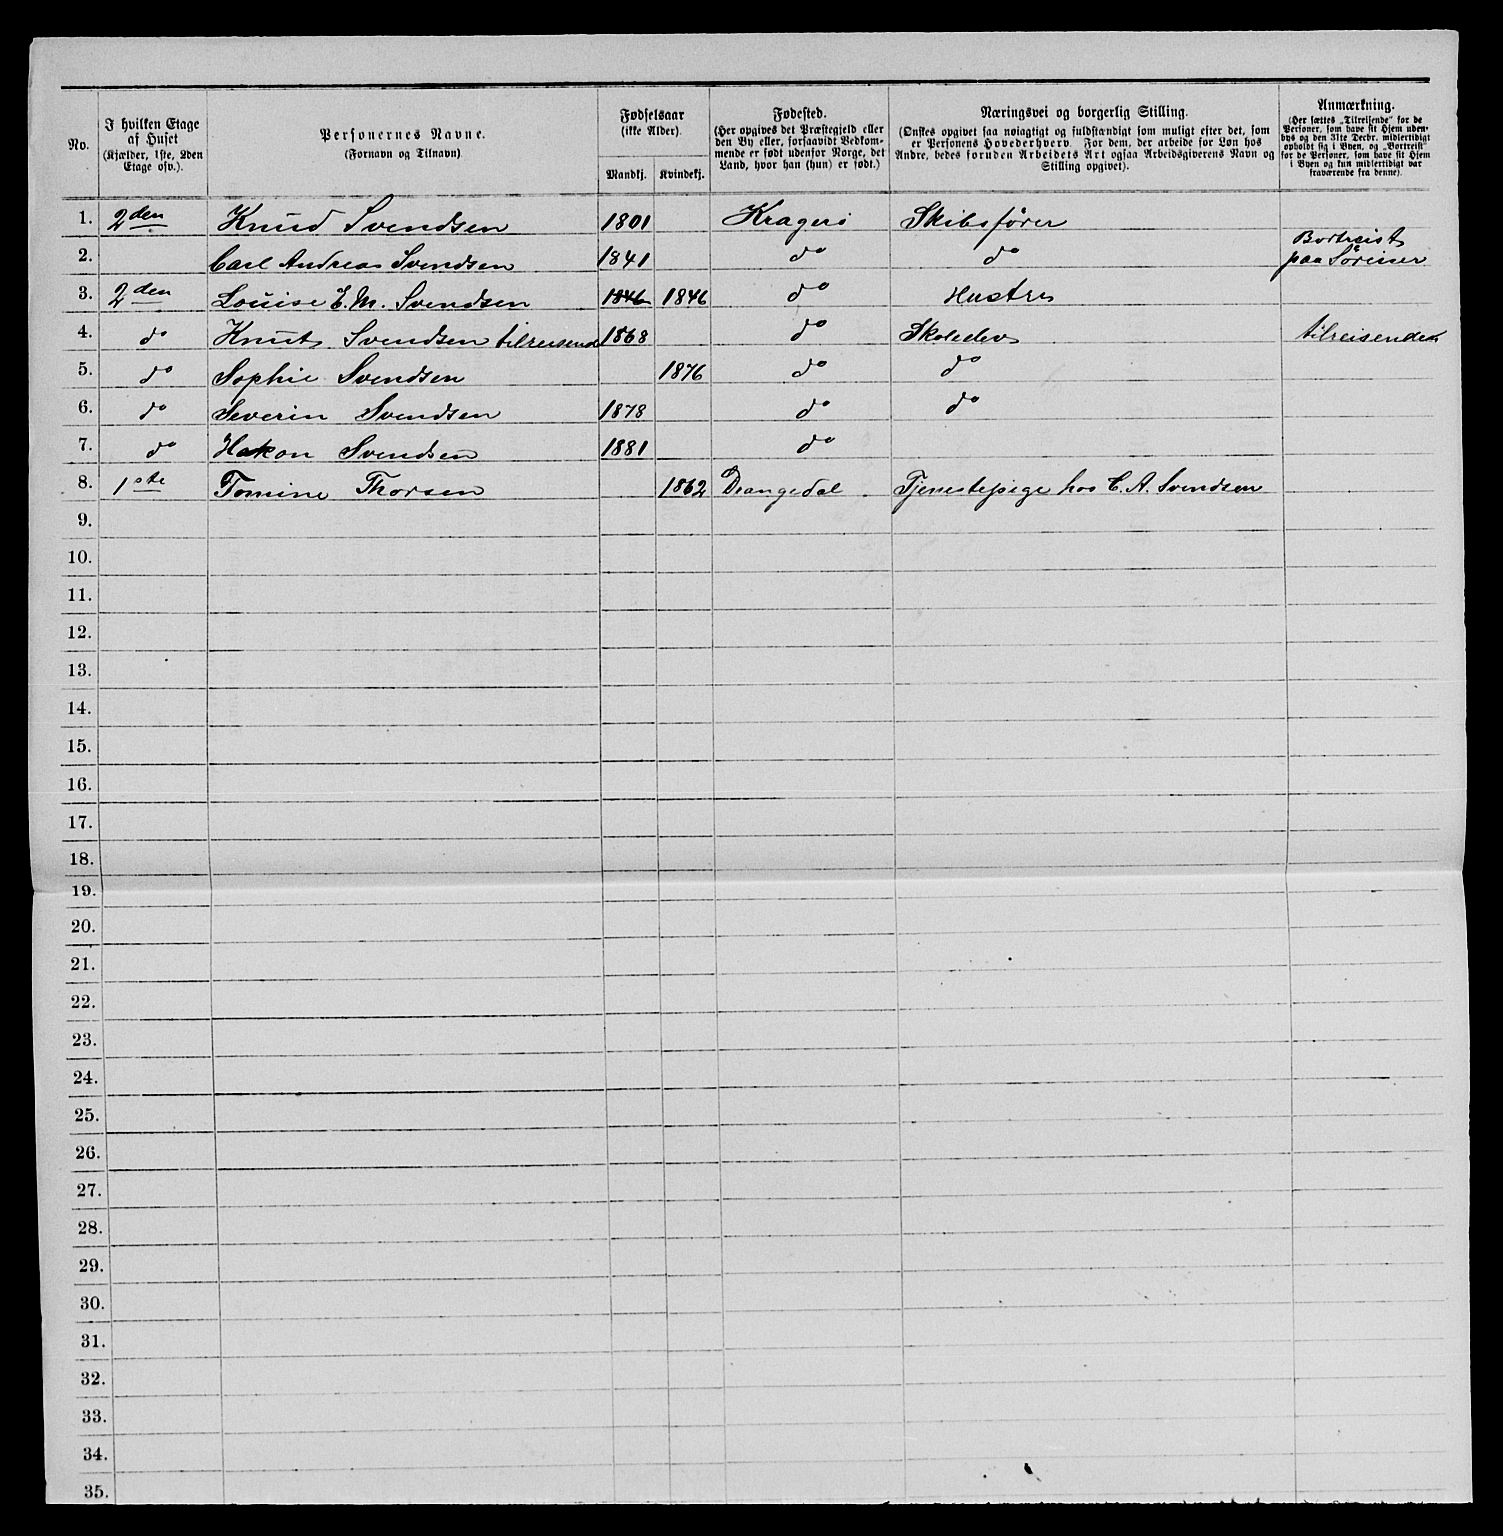 No.
I hvilken Etage af Huset (Kjælder, 1ste, 2den Etage osv.).
Personernes Navne. (Fornavn og Tilnavn)
Fødselsaar (ikke Alder).
Mandkj. Kvindekj.
Fødested. (Her opgives det Præstegjeld eller den By eller, forsaavidt Vedkommende er født udenfor Norge, det Land, hvor han (hun) er født.)
Næringsvei og borgerlig Stilling. (Ønskes opgivet saa nøiagtigt og fuldstændigt som muligt efter det, som er Personens Hovederhverv. For dem, der arbeide for Løn hos Andre, bedes foruden Arbeidets Art ogsaa Arbeidsgiverens Navn og Stilling opgivet).
Anmærkning. (Her sættes „Tilreisende" for de Personer, som have sit Hjem udenbys og den 31te Decbr. midlertidigt opholdt sig i Byen, og „Bortreist" for de Personer, som have sit Hjem i Byen og kun midlertidigt var fraværende fra denne).
1. 2den Knud Svendsen 1801 Kragerö Skibsförer
2. Carl Andreas Svendsen 1841 do do Bortreist paa Söreiser
3. 2den Louise E. M. Svendsen 1846 1846 do Hustru
4. do Knut Svendsen tilreisend 1868 do Skoleelev tilreisende
5. do Sophie Svendsen 1876 do do
6. do Severin Svendsen 1878 do do
7. do Hakon Svendsen 1881 do
8. 1ste Tomine Thorsen 1862 Drangedal Tjenestepige hos C. A. Svendsen
9.
10.
11.
12.
13.
14.
15.
16.
17.
18.
19.
20.
21.
22.
23.
24.
25.
26.
27.
28.
29.
30.
31.
32.
33.
34.
35.